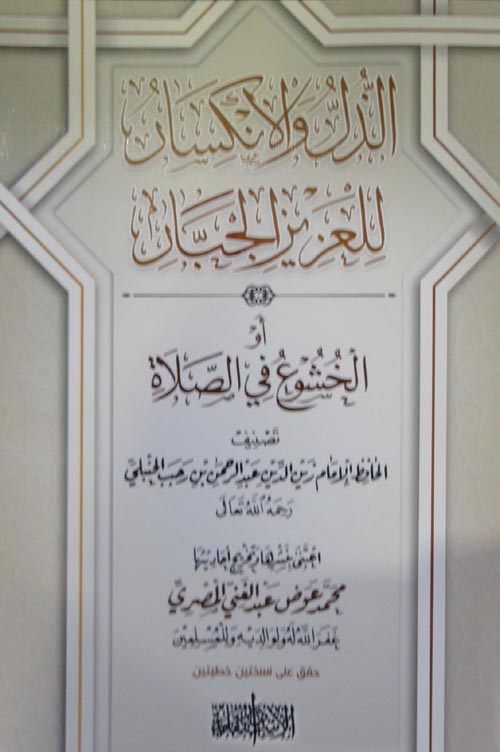 الذُّلُّ وَالِانْكِسَارُ
لِلْعَزِيزِ الجَبَّارِ
أَوْ
الْخُشُوعُ فِي الصَّلَاةِ
تصنيف
الحافظ الإمام زين الدين عبد الرحمن بن رجب الحنبلي
رحمه الله تعالى
اعتنى بنشرها وتخريج أحاديثها
محمد عوض عبد الغني المصري
غفر الله له ولوالديه وللمسلمين
حقق على نسختين خطيتين